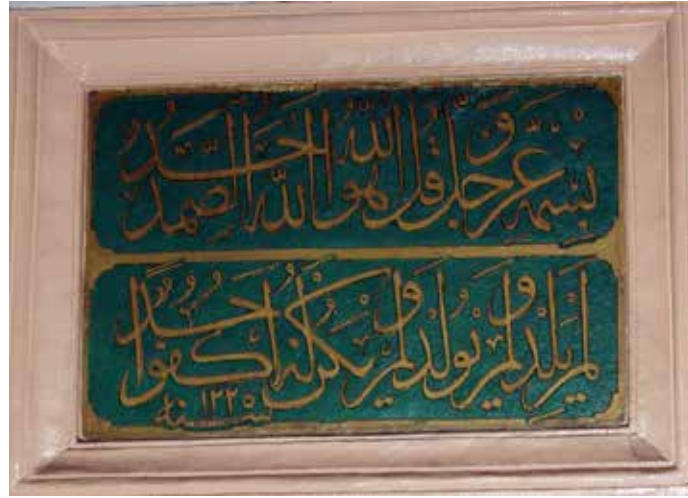 بسمه عز وجل قل هو الله احد الله الصمد
لم يلد ولم يولد ولم يكن له كفوا احد
سنه ١٢٢٠